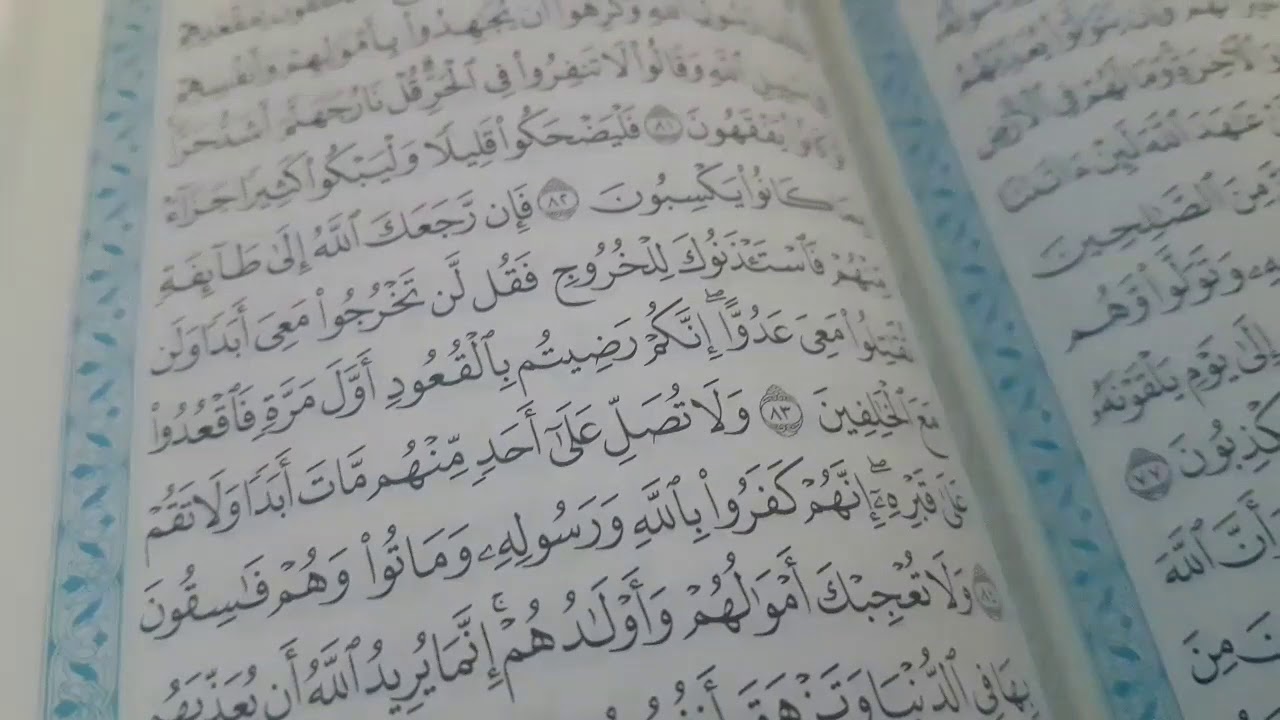 يَتَوَلَّوْا۟ يُعَذِّبْهُمُ
وَٱلْءَاخِرَةِ وَمَا لَهُمْ فِى ٱلْأَرْضِ
عَٰهَدَ ٱللَّهَ لَئِنْ ءَاتَىٰنَا
مِنَ ٱلصَّٰلِحِينَ
وَتَوَلَّوا۟ وَّهُم
إِلَىٰ يَوْمِ يَلْقَوْنَهُۥ
يَكْذِبُونَ ٧٧
وَأَنَّ ٱللَّهَ
مِنَ
وَكَرِهُوٓا۟ أَن يُجَٰهِدُوا۟ بِأَمْوَٰلِهِمْ وَأَنفُسِهِمْ
سَبِيلِ ٱللَّهِ وَقَالُوا۟ لَا تَنفِرُوا۟ فِى ٱلْحَرِّ قُلْ نَارُ جَهَنَّمَ أَشَدُّ حَرًّا
كَانُوا۟ يَفْقَهُونَ ٨١ فَلْيَضْحَكُوا۟ قَلِيلًا وَلْيَبْكُوا۟ كَثِيرًا جَزَآءًۢ
بِمَا كَانُوا۟ يَكْسِبُونَ ٨٢ فَإِن رَّجَعَكَ ٱللَّهُ إِلَىٰ طَآئِفَةٍ
مِّنْهُمْ فَٱسْتَـْٔذَنُوكَ لِلْخُرُوجِ فَقُل لَّن تَخْرُجُوا۟ مَعِىَ أَبَدًا وَلَن
تُقَٰتِلُوا۟ مَعِىَ عَدُوًّا ۖ إِنَّكُمْ رَضِيتُم بِٱلْقُعُودِ أَوَّلَ مَرَّةٍ فَٱقْعُدُوا۟
مَعَ ٱلْخَٰلِفِينَ ٨٣ وَلَا تُصَلِّ عَلَىٰٓ أَحَدٍ مِّنْهُم مَّاتَ أَبَدًا وَلَا تَقُمْ
عَلَىٰ قَبْرِهِۦٓ ۖ إِنَّهُمْ كَفَرُوا۟ بِٱللَّهِ وَرَسُولِهِۦ وَمَاتُوا۟ وَهُمْ فَٰسِقُونَ
٨٤ وَلَا تُعْجِبْكَ أَمْوَٰلُهُمْ وَأَوْلَٰدُهُمْ ۚ إِنَّمَا يُرِيدُ ٱللَّهُ أَن يُعَذِّبَهُم
بِهَا فِى ٱلدُّنْيَا وَتَزْهَقَ